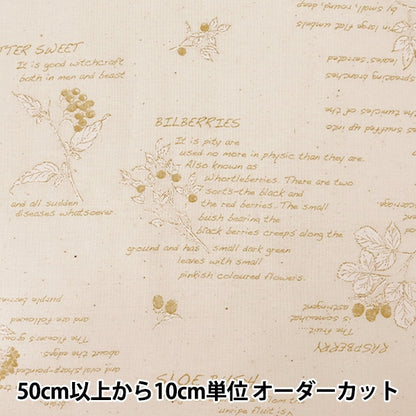 TTER SWEET
It is good witchcraft
both in men and beast
and all sudden
diseases whatsoever.
BILBERRIES
It is pity are
used no more in physic than they are.
Also known as
Whortleberries. There are two
sorts-the black and
the red berries. The small
bush bearing the
black berries creeps along the
ground and has small dark green
leaves with small
pinkish coloured flowers.
in large flat umbels
leaves, serrated
spreading branches
the tunicles of the
snuffed up into
RASPBERRY
The fruit...
is somewhat
astringent
purple berries
and are followed
The flowers grow
about the edges
and oval sharp-pointed
unripe fruit is
50cm以上から10cm単位 オーダーカット